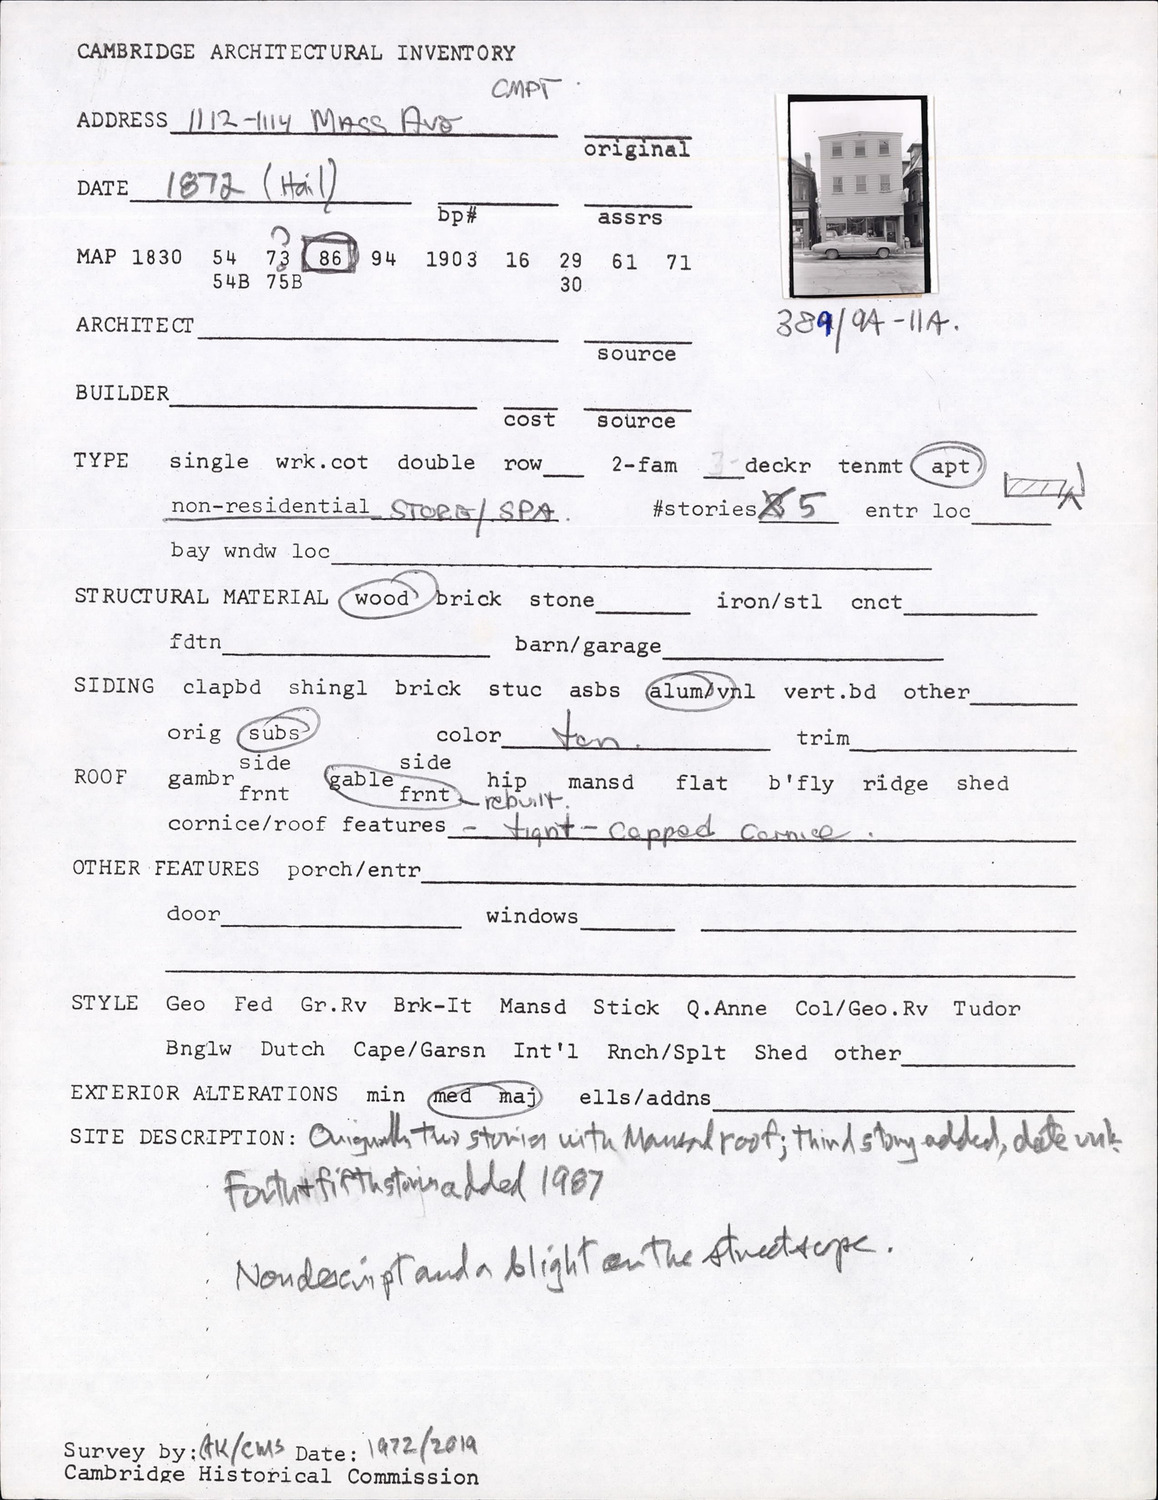 CAMBRIDGE ARCHITECTURAL INVENTORY
CMPT
ADDRESS 1112-1114 MASS AVE
original
DATE 1872 (Hail)
bp# assrs
MAP 1830 54 73 86 94 1903 16 29 61 71
54B 75B 30
389/9A-11A.
ARCHITECT
source
BUILDER
cost source
TYPE single wrk.cot double row 2-fam 3-deckr tenmt apt
non-residential STORE/SPA. #stories 5 entr loc
bay wndw loc
STRUCTURAL MATERIAL wood brick stone iron/stl cnct
fdtn barn/garage
SIDING clapbd shingl brick stuc asbs alum/vnl vert.bd other
orig subs color tan. trim
side side
ROOF gambr gable hip mansd flat b'fly ridge shed
frnt frnt - rebuilt.
cornice/roof features - tight - capped cornice.
OTHER FEATURES porch/entr
door windows
STYLE Geo Fed Gr.Rv Brk-It Mansd Stick Q.Anne Col/Geo.Rv Tudor
Bnglw Dutch Cape/Garsn Int'l Rnch/Splt Shed other
EXTERIOR ALTERATIONS min med maj ells/addns
SITE DESCRIPTION: Originally two stories with Mansard roof; third story added, date unk.
Forth + fifth stories added 1987
Nondescript and a blight on the streetscape.
Survey by: AK/CMS Date: 1972/2019
Cambridge Historical Commission